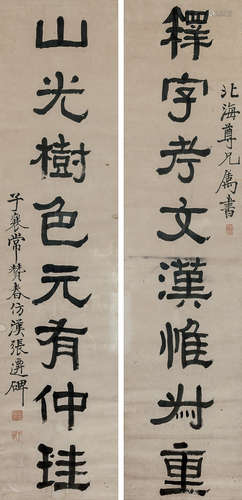 北海尊兄属書
釋字考文漢惟叔重
山光樹色元有仲珪
子襄常贊春仿漢張遷碑